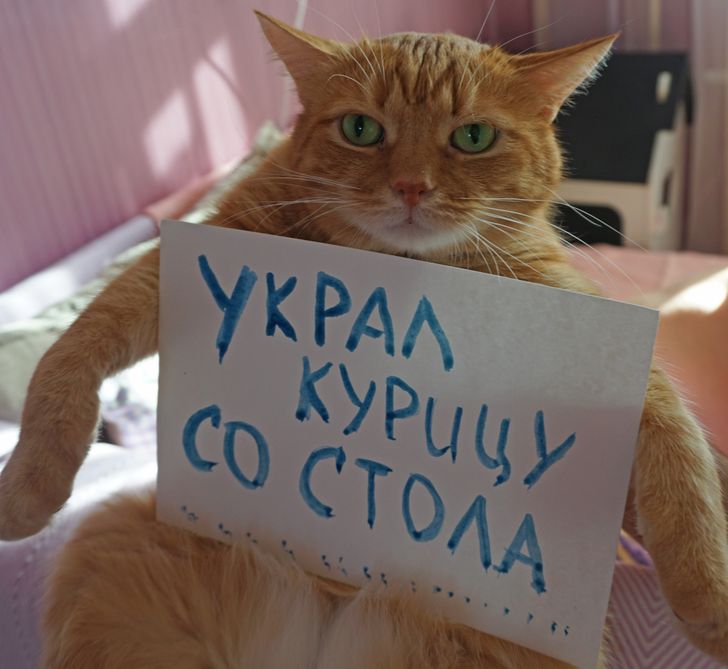 УКРАЛ
КУРИЦУ
СО СТОЛА